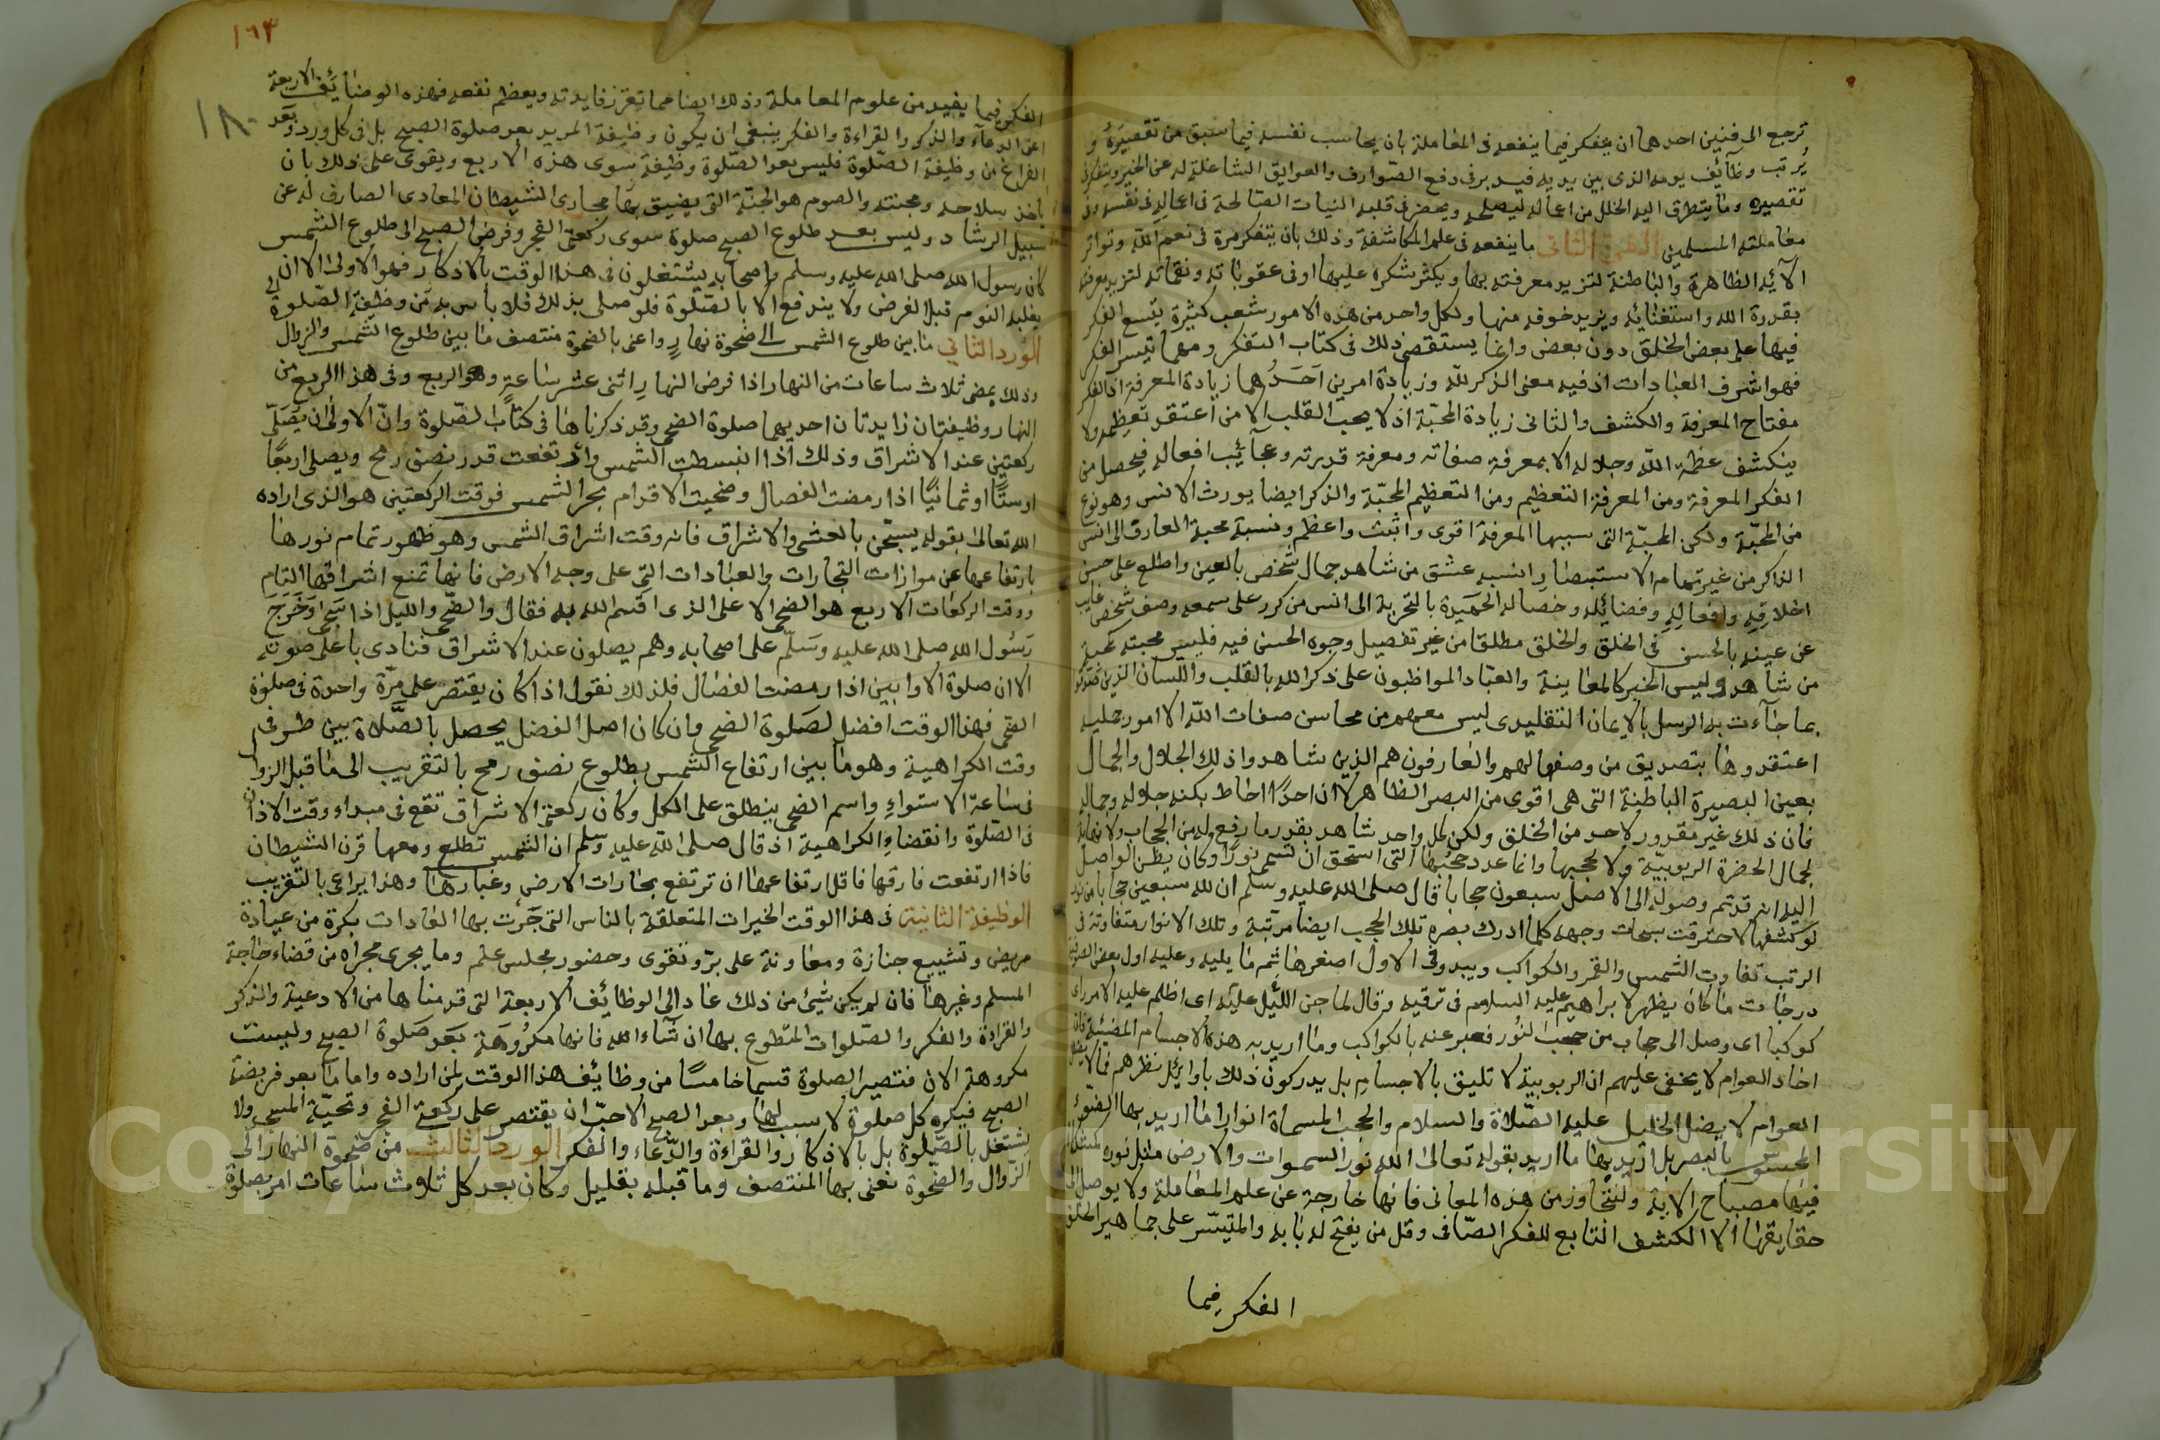 ترجع الى فنين احدهما ان يتفكر فيما ينفعه فى المعاملة بان يحاسب نفسه فيما سبق من تقصيره و
يرتب وظائف يومه الذى بين يديه فيدبر فى دفع الصوارف والعوايق الشاغلة له عن الخير ويتفكر فى
تقصيره وما يتطرق اليه الخلل من اعماله ليصلحه ويحضر فى قلبه النيات الصالحة فى اعماله فى نفسه وفى
معاملته المسلمين الفن الثانى ما ينفعه فى علم المكاشفة وذلك بان يتفكر مرة فى نعم الله وتواتر
الآئه الظاهرة والباطنة لتزيد معرفته بها ويكثر شكره عليها او فى عقوباته ونقماته لتزيد معرفته
بقدرة الله واستغنائه ويزيد خوفه منها ولكل واحد من هذه الامور شعب كثيرة يتسع الفكر
فيها على بعض الخلق دون بعض وانما يستقصى ذلك فى كتاب التفكر ومهما تيسر الفكر
فهو اشرف العبادات اذ فيه معنى الذكر لله وزيادة امرين احدهما زيادة المعرفة اذ الفكر
مفتاح المعرفة والكشف والثانى زيادة المحبة اذ لا يحب القلب الا من اعتقد تعظيمه ولا
ينكشف عظمة الله وجلاله الا بمعرفة صفاته ومعرفة قدرته وعجائب افعاله فيحصل من
الفكر المعرفة ومن المعرفة التعظيم ومن التعظيم المحبة والذكر ايضا يورث الانس وهو نوع
من المحبة ولكن المحبة التى سببها المعرفة اقوى واثبت واعظم ونسبة محبة العارف الى انس
الذاكر من غير تمام الاستبصار انسبه عشق من شاهد جمال شخص بالعين واطلع على حسن
اخلاقه وافعاله وفضائله وخصاله الحميدة بالتجربة الى انس من كرر على سمعه وصف شخص غايب
عن عينه بالحسن فى الخلق والخلق مطلقا من غير تفصيل وجوه الحسن فيه فليس محبته كمحبة
من شاهد وليس الخبر كالمعاينة والعباد المواظبون على ذكر الله بالقلب واللسان الذين صدقوا
بما جآءت به الرسل بالايمان التقليدى ليس معهم من محاسن صفات الله الا امور جلية
اعتقدوها بتصديق من وصفها لهم والعارفون هم الذين شاهدوا ذلك الجلال والجمال
بعين البصيرة الباطنة التى هى اقوى من البصر الظاهر لان احدًا احاط بكنه جلاله وجماله
فان ذلك غير مقدور لاحد من الخلق ولكن كل واحد شاهد بقدر ما رفع له من الحجاب ولا نهاية
لجمال الحضرة الربوبية ولا لحجبها وانما عدد حجبها التى استحق ان تسمى نورًا وكان يظن الواصل
اليه انه قد تم وصوله الى الاصل سبعون حجابا قال صلى الله عليه وسلم ان لله سبعين حجابا من نور
لو كشفها لاحترقت سبحات وجهه كلما ادرك بصره تلك الحجب ايضا مرتبة وتلك الانوار متفاوتة فى
الرتب تفاوت الشمس والقمر والكواكب ويبدو فى الاول اصغرها ثم ما يليه وعليه اول بعض الصوفية
درجات ما كان يظهر لابراهيم عليه السلام فى ترقيه وقال لما جن الليل عليه اى اظلم عليه الامر راى
كوكبا اى وصل الى حجاب من حجب النور فعبر عنه بالكواكب وما اريد به هذه الاجسام المضيئة فان
احاد العوام لا يخفى عليهم ان الربوبية لا تليق بالاجسام بل يدركون ذلك باوائل نظرهم فما لا يضلل
العوام لا يضلل الخليل عليه الصلاة والسلام والحجب المسماة انوارا ما اريد بها الضوء
المحسوس بالبصر بل اريد بها ما اريد بقوله تعالى الله نور السموات والارض مثل نوره كمشكاة
فيها مصباح الاية ولنتجاوز من هذه المعانى فانها خارجة عن علم المعاملة ولا يوصل الى
حقايقها الا الكشف التابع للفكر الصافى وقل من يفتح له بابه والمتيسر على جماهير الخلق
الفكر فيما
١٦٣
١٨٠
الفكر فيما يفيد من علوم المعاملة وذلك ايضا مما تغزر فايدته ويعظم نفعه فهذه الوضائف الاربعة
اعنى الدعآء والذكر والقراءة والفكر ينبغى ان يكون وظيفة المريد بعد صلوة الصبح بل فى كل ورد وبعد
الفراغ من وظيفة الصلوة فليس بعد الصلوة وظيفة سوى هذه الاربع ويقوى على ذلك بان
ياخذ سلاحه ومجنته والصوم هو الجنة التى يضيق بها مجارى الشيطان المعادى الصارف له عن
سبيل الرشاد وليس بعد طلوع الصبح صلوة سوى ركعتى الفجر وفرض الصبح الى طلوع الشمس
كان رسول الله صلى الله عليه وسلم واصحابه يشتغلون فى هذا الوقت بالاذكار فهو الاولى الا ان
يغلبه النوم قبل الفرض ولا يندفع الا بالصلوة فلو صلى بذلك فلا بأس به من وظيفة الصلوة
الورد الثانى ما بين طلوع الشمس الى ضحوة نهار واعنى بالضحوة منتصف ما بين طلوع الشمس والزوال
وذلك بمضى ثلاث ساعات من النهار اذا فرض النهار اثنى عشر ساعة وهو الربع وفى هذا الربع من
النهار وظيفتان زايدتان احديهما صلوة الضحى وقد ذكرناها فى كتاب الصلوة وان الاولى ان يصلى
ركعتين عند الاشراق وذلك اذا انبسطت الشمس وارتفعت قدر نصف رمح ويصلى اربعًا
او ستًا او ثمانيًا اذا رمضت الفصال وضحيت الاقدام بحر الشمس فوقت الركعتين هو الذى اراده
الله تعالى بقوله يسبحن بالعشى والاشراق فانه وقت اشراق الشمس وهو ظهور تمام نورها
بارتفاعها عن موازات البخارات والغبارات التى على وجه الارض فانها تمنع اشراقها التام
ووقت الركعات الاربع هو الضحى الاعلى الذى اقسم الله به فقال والضحى والليل اذا سجى وخرج
رسول الله صلى الله عليه وسلم على اصحابه وهم يصلون عند الاشراق فنادى باعلى صوته
الا ان صلوة الاوابين اذا رمضت الفصال فلذلك نقول اذا كان يقتصر على مرة واحدة فى صلوة
الضحى فهذا الوقت افضل لصلوة الضحى وان كان اصل الفضل يحصل بالصلاة بين طرفى
وقت الكراهية وهو ما بين ارتفاع الشمس بطلوع نصف رمح بالتقريب الى ما قبل الزوال
فى ساعة الاستواء واسم الضحى ينطلق على الكل وكان ركعتى الاشراق تقع فى مبداء وقت الاذان
فى الصلوة وانقضاء الكراهية اذ قال صلى الله عليه وسلم ان الشمس تطلع ومعها قرن الشيطان
فاذا ارتفعت فارقها فاقل ارتفاعها ان ترتفع بخارات الارض وغبارها وهذا يراعى بالتقريب
الوظيفة الثانية فى هذا الوقت الخيرات المتعلقة بالناس التى جرت بها العادات بكرة من عيادة
مريض وتشييع جنازة ومعاونة على بر وتقوى وحضور مجلس علم وما يجرى مجراه من قضاء حاجة
المسلم وغيرها فان لم يكن شيئ من ذلك عاد الى الوظائف الاربعة التى قدمناها من الادعية والذكر
والقراءة والفكر والصلوات المتطوع بها ان شاء الله فانها مكروهة بعد صلوة الصبح وليست
مكروهة الان فتصير الصلوة قسيما خامسًا من وظائف هذا الوقت لمن اراده واما ما بعد فريضة
الصبح فيكره كل صلوة لا سبب لها وبعد الصبح الاحب ان يقتصر على ركعتى الفجر وتحية المسجد ولا
يشتغل بالصلوة بل بالاذكار والقراءة والدعاء والفكر الورد الثالث من ضحوة النهار الى
الزوال والضحوة نعنى بها المنتصف وما قبله بقليل وكان بعد كل ثلاث ساعات امر بصلوة